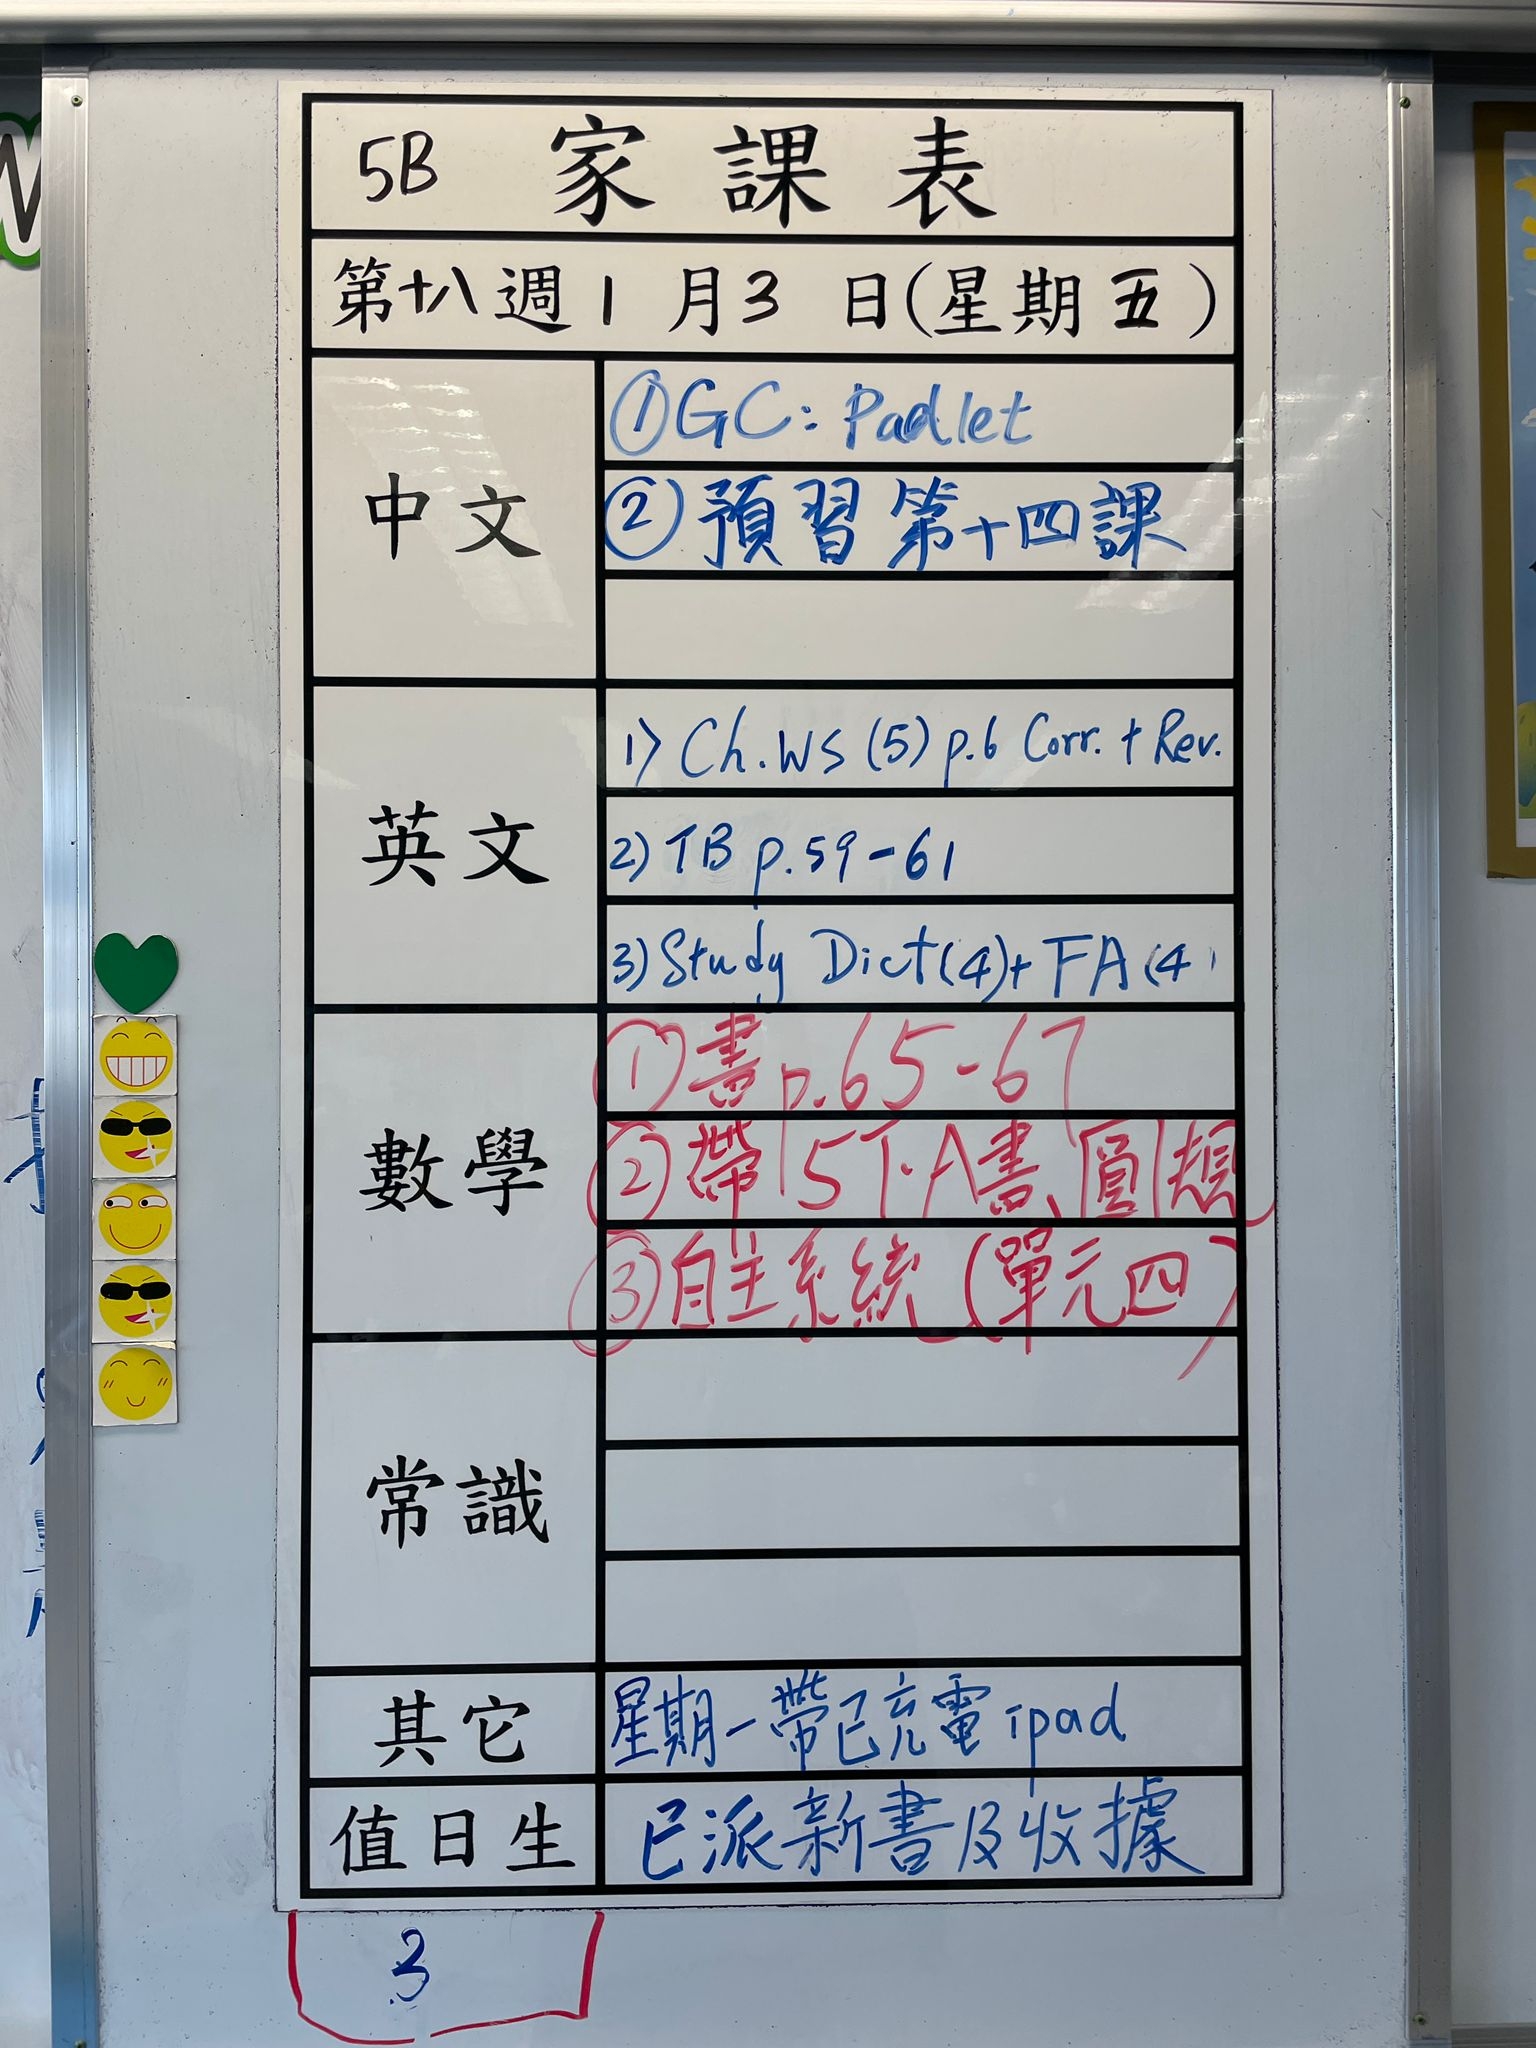 5B 家課表
第十八週1月3日(星期五)
中文
①GC: Padlet
②預習第十四課
英文
1) Ch.WS (5) p.6 Corr. + Rev.
2) TB p.59-61
3) Study Dict(4)+ FA (4)
數學
①書p.65-67
②帶5下A書、圓規
③自主系統(單元四)
常識
其它
星期一帶已充電ipad
值日生
已派新書及收據
3